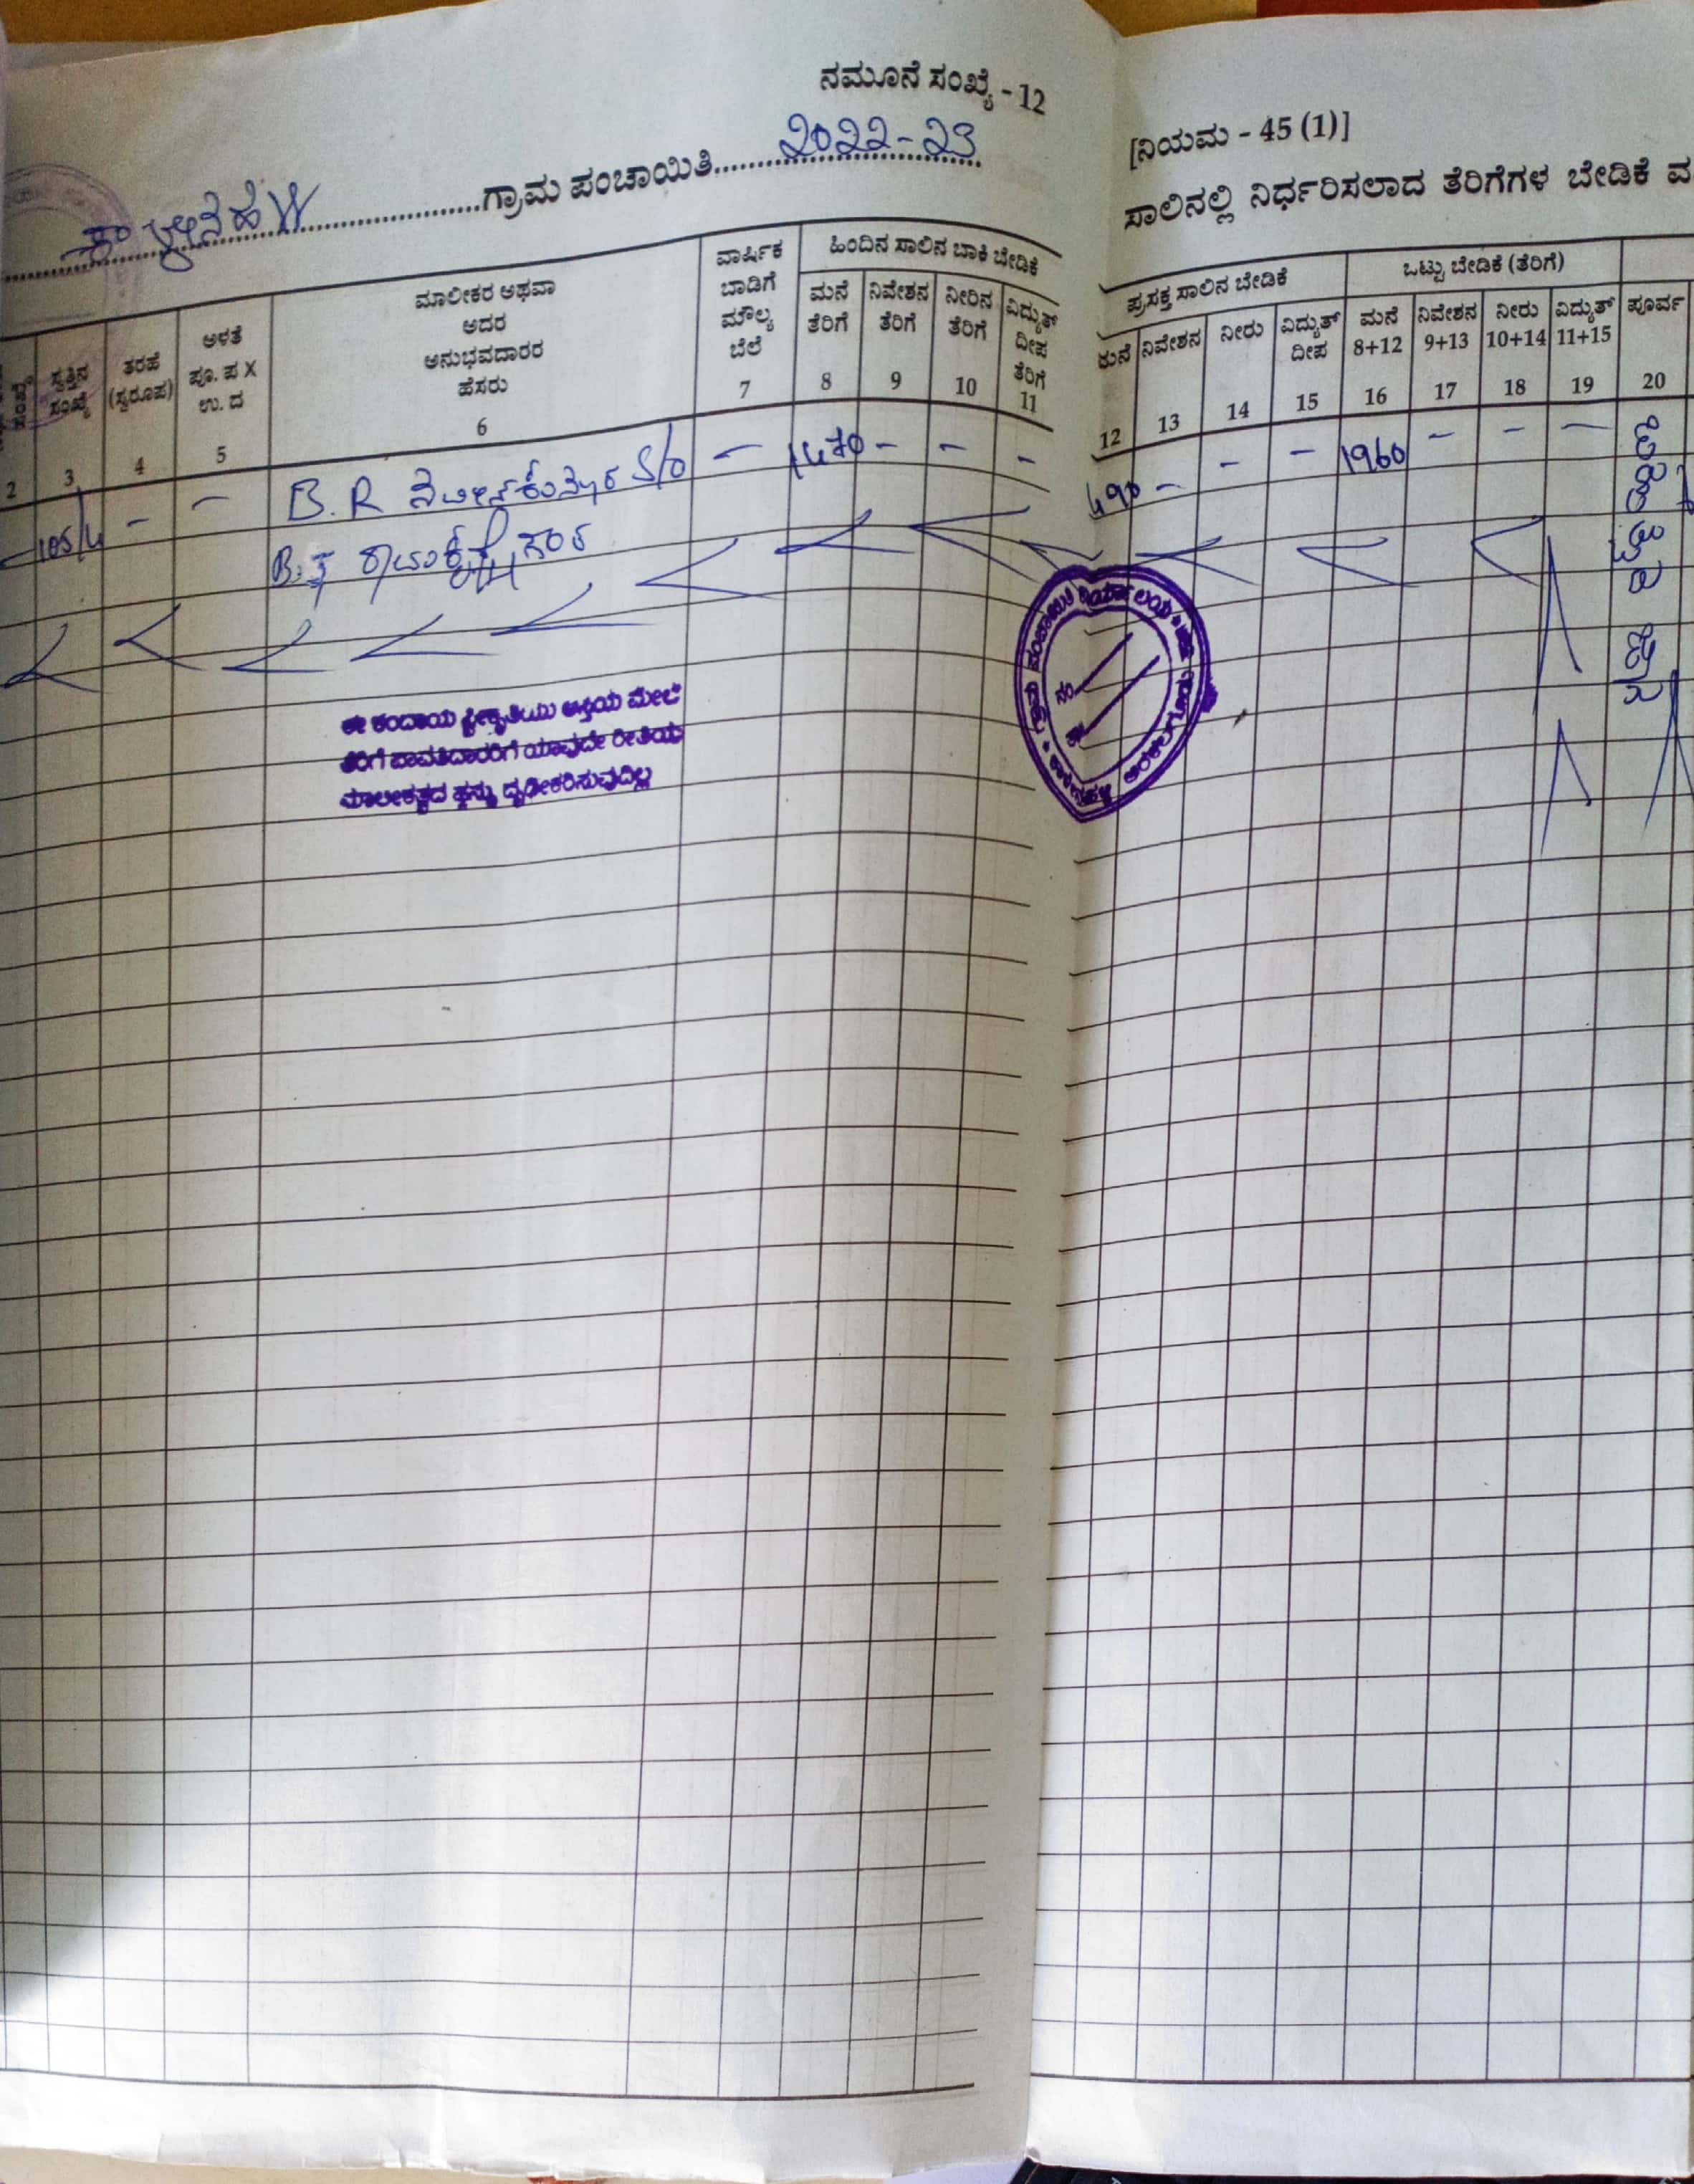 ನಮೂನೆ ಸಂಖ್ಯೆ - 12
ಗ್ರಾಮ ಪಂಚಾಯಿತಿ 2022-23
ಸ್ವತ್ತಿನ ಸಂಖ್ಯೆ
3
ತರಹೆ (ಸ್ವರೂಪ)
4
ಅಳತೆ
ಪೂ. ಪ X
ಉ. ದ
5
ಮಾಲೀಕರ ಅಥವಾ
ಅದರ
ಅನುಭವದಾರರ
ಹೆಸರು
6
ವಾರ್ಷಿಕ
ಬಾಡಿಗೆ
ಮೌಲ್ಯ
ಬೆಲೆ
7
ಹಿಂದಿನ ಸಾಲಿನ ಬಾಕಿ ಬೇಡಿಕೆ
ಮನೆ ತೆರಿಗೆ
8
ನಿವೇಶನ ತೆರಿಗೆ
9
ನೀರಿನ ತೆರಿಗೆ
10
ವಿದ್ಯುತ್ ದೀಪ ತೆರಿಗೆ
11
2
105/4 - - B. R ನವೀನ್ ಕುಮಾರ S/o - 1470 - - -
ಈ ಕಂದಾಯ ಸ್ವೀಕೃತಿಯು ಆಸ್ತಿಯ ಮೇಲೆ
ತೆರಿಗೆ ಪಾವತಿದಾರರಿಗೆ ಯಾವುದೇ ರೀತಿಯ
ಮಾಲೀಕತ್ವದ ಹಕ್ಕನ್ನು ದೃಢೀಕರಿಸುವುದಿಲ್ಲ
[ನಿಯಮ - 45 (1)]
ಸಾಲಿನಲ್ಲಿ ನಿರ್ಧರಿಸಲಾದ ತೆರಿಗೆಗಳ ಬೇಡಿಕೆ ವ
ಪ್ರಸಕ್ತ ಸಾಲಿನ ಬೇಡಿಕೆ
ಒಟ್ಟು ಬೇಡಿಕೆ (ತೆರಿಗೆ)
ಮನೆ
12
ನಿವೇಶನ
13
ನೀರು
14
ವಿದ್ಯುತ್ ದೀಪ
15
ಮನೆ
8+12
16
ನಿವೇಶನ
9+13
17
ನೀರು
10+14
18
ವಿದ್ಯುತ್
11+15
19
ಪೂರ್ವ
20
490 - - - 1960 - - -